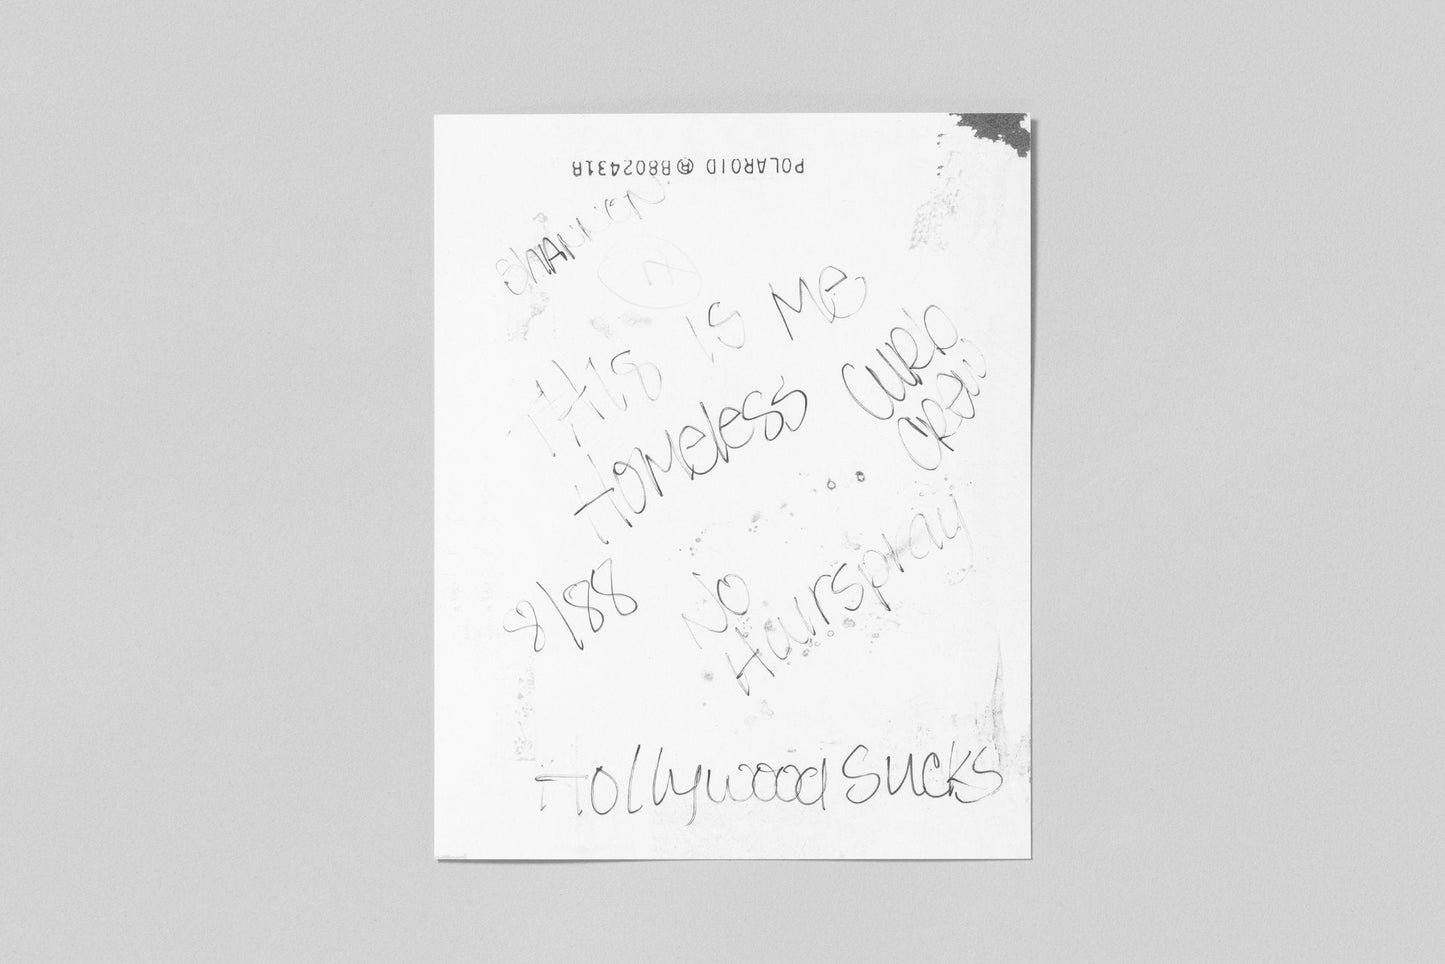 POLAROID ® B8024318
SHANNON
THIS IS ME
HOMELESS
CURb
CREW
8/88
NO
Hairspray
Hollywood SUCKS